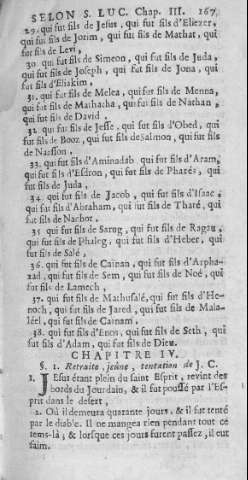 SELON S. LUC. Chap. III. 167
29. qui fut fils de Jesus, qui fut fils d'Eliezer,
qui fut fils de Jorim, qui fut fils de Mathat, qui
fut fils de Levi,
30. qui fut fils de Simeon, qui fut fils de Juda,
qui fut fils de Joseph, qui fut fils de Jona, qui
fut fils d'Eliakim,
31. qui fut fils de Melea, qui fut fils de Menna,
qui fut fils de Mathatha, qui fut fils de Nathan,
qui fut fils de David.
32. qui fut fils de Jesse, qui fut fils d'Obed, qui
fut fils de Booz, qui fut fils de Salmon, qui fut fils
de Naasson,
33. qui fut fils d'Aminadab, qui fut fils d'Aram,
qui fut fils d'Esron, qui fut fils de Pharés, qui
fut fils de Juda,
34. qui fut fils de Jacob, qui fut fils d'Isaac,
qui fut fils d'Abraham, qui fut fils de Tharé, qui
fut fils de Nachor.
35. qui fut fils de Sarug, qui fut fils de Ragau,
qui fut fils de Phaleg, qui fut fils d'Heber, qui
fut fils de Salé,
36. qui fut fils de Cainan, qui fut fils d'Arpha-
xad, qui fut fils de Sem, qui fut fils de Noé, qui
fut fils de Lamech,
37. qui fut fils de Mathusalé, qui fut fils d'He-
noch, qui fut fils de Jared, qui fut fils de Mala-
léel, qui fut fils de Cainam,
38. qui fut fils d'Enos, qui fut fils de Seth, qui
fut fils d'Adam, qui fut fils de Dieu.
CHAPITRE IV.
§. 1. Retraite, jeûne, tentation de J. C.
1. JEsus étant plein du saint Esprit, revint des
bords du Jourdain, & il fut poussé par l'Es-
prit dans le desert,
2. Où il demeura quarante jours, & il fut tenté
par le diable. Il ne mangea rien pendant tout ce
tems-là; & lorsque ces jours furent passez, il eut
faim.